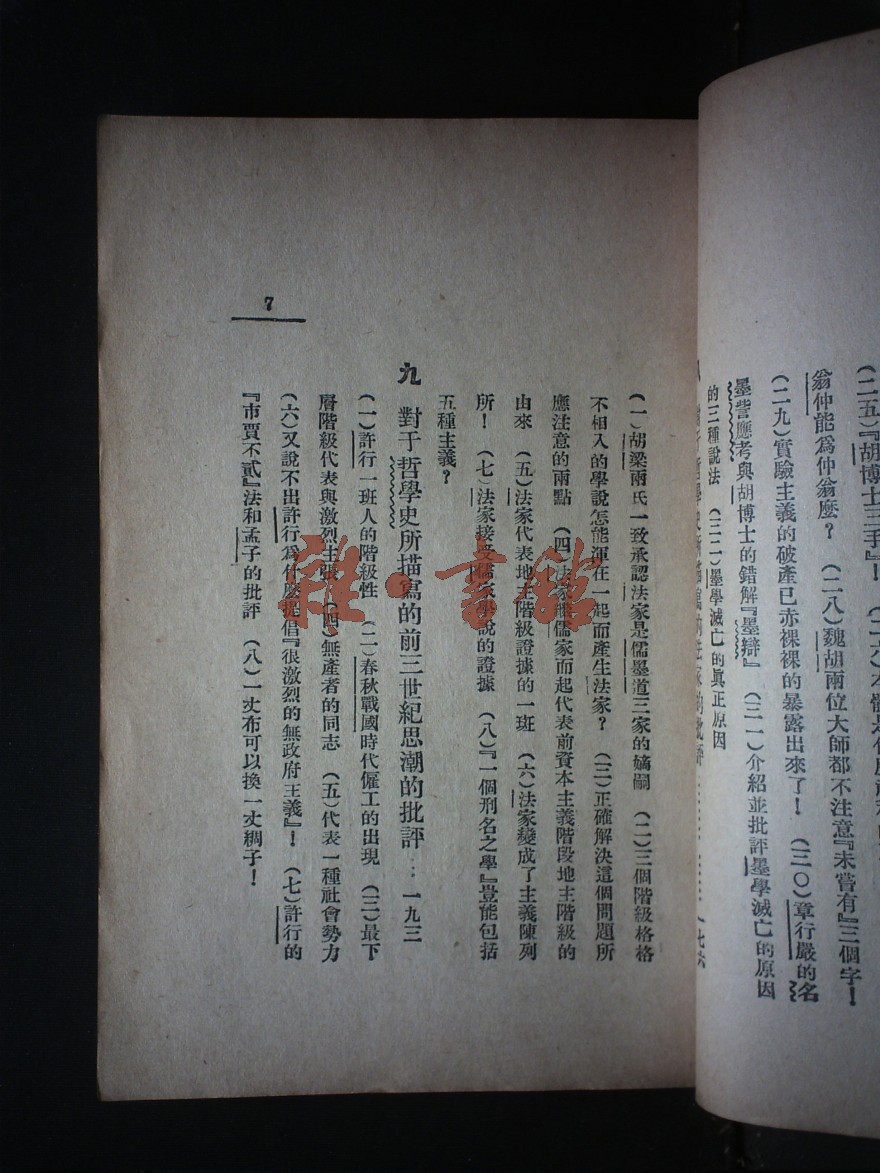 (二五)『胡博士三手』!
翁仲能爲仲翁麼? (二八)魏胡兩位大師都不注意『未嘗有』三個字!
(二九)實驗主義的破產已赤裸裸的暴露出來了! (三〇)章行嚴的名
墨訾應考與胡博士的錯解『墨辯』 (三一)介紹並批評墨學滅亡的原因
的三種說法 (三二)墨學滅亡的眞正原因
(一)胡梁兩氏一致承認法家是儒墨道三家的嫡嗣 (二)三個階級格格
不相入的學說怎能渾在一起而產生法家? (三)正確解決這個問題所
應注意的兩點 (四)法家繼儒家而起代表前資本主義階段地主階級的
由來 (五)法家代表地主階級證據的一班 (六)法家變成了主義陳列
所! (七)法家接受儒家學說的證據 (八)『一個刑名之學』豈能包括
五種主義?
九 對于哲學史所描寫的前三世紀思潮的批評⋯一九三
(一)許行一班人的階級性 (二)春秋戰國時代僱工的出現 (三)最下
層階級代表與激烈主張 (四)無產者的同志 (五)代表一種社會勢力
(六)又說不出許行爲什麽提倡『很激烈的無政府主義』! (七)許行的
『市賈不貳』法和孟子的批評 (八)一丈布可以換一丈綢子!
7
雅·書館